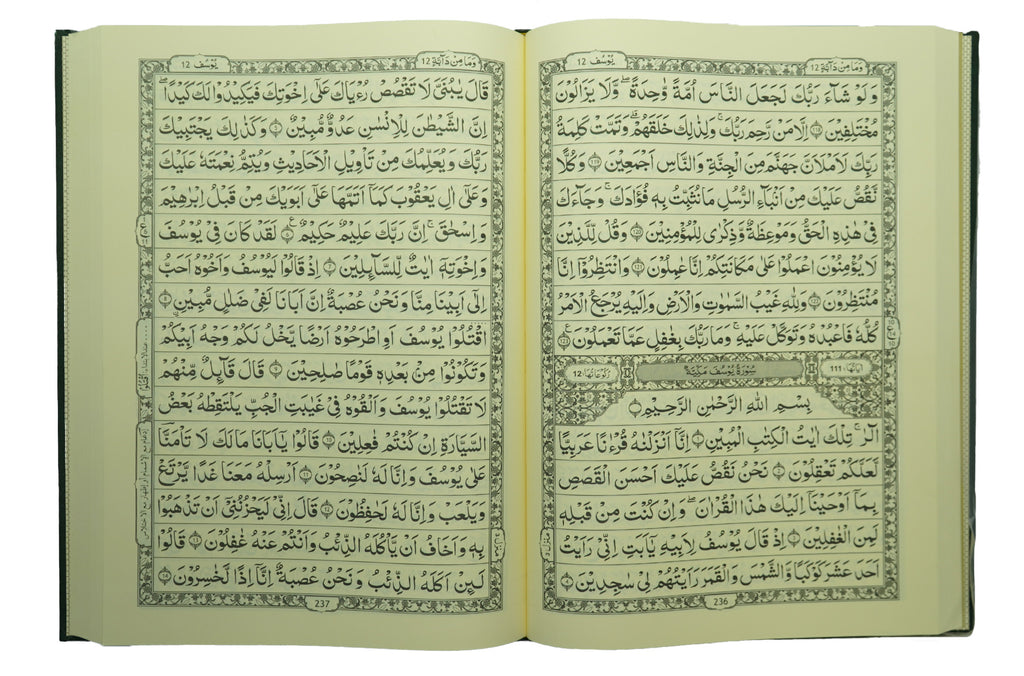 وَمَا مِنْ دَآبَّةٍ 12
يُوْسُف 12
وَلَوْ شَآءَ رَبُّكَ لَجَعَلَ النَّاسَ اُمَّةً وَّاحِدَةً وَّلَا يَزَالُوْنَ
مُخْتَلِفِيْنَ ﴿١١٨﴾ اِلَّا مَنْ رَّحِمَ رَبُّكَ ؕ وَلِذٰلِكَ خَلَقَهُمْ ؕ وَتَمَّتْ كَلِمَةُ
رَبِّكَ لَاَمْلَـَٔنَّ جَهَنَّمَ مِنَ الْجِنَّةِ وَالنَّاسِ اَجْمَعِيْنَ ﴿١١٩﴾ وَكُلًّا
نَّقُصُّ عَلَيْكَ مِنْ اَنْۢبَآءِ الرُّسُلِ مَا نُثَبِّتُ بِهٖ فُؤَادَكَ ۚ وَجَآءَكَ
فِيْ هٰذِهِ الْحَقُّ وَمَوْعِظَةٌ وَّذِكْرٰى لِلْمُؤْمِنِيْنَ ﴿١٢٠﴾ وَقُلْ لِّلَّذِيْنَ
لَا يُؤْمِنُوْنَ اعْمَلُوْا عَلٰى مَكَانَتِكُمْ ؕ اِنَّا عٰمِلُوْنَ ﴿١٢١﴾ وَانْتَظِرُوْا ۚ اِنَّا
مُنْتَظِرُوْنَ ﴿١٢٢﴾ وَلِلّٰهِ غَيْبُ السَّمٰوٰتِ وَالْاَرْضِ وَاِلَيْهِ يُرْجَعُ الْاَمْرُ
كُلُّهٗ فَاعْبُدْهُ وَتَوَكَّلْ عَلَيْهِ ؕ وَمَا رَبُّكَ بِغَافِلٍ عَمَّا تَعْمَلُوْنَ ﴿١٢٣﴾
اٰيَاتُهَا 111 سُوْرَةُ يُوْسُفَ مَكِّيَّةٌ رُكُوْعَاتُهَا 12
بِسْمِ اللّٰهِ الرَّحْمٰنِ الرَّحِيْمِ
الٓرٰ ۚ تِلْكَ اٰيٰتُ الْكِتٰبِ الْمُبِيْنِ ﴿١﴾ اِنَّآ اَنْزَلْنٰهُ قُرْءٰنًا عَرَبِيًّا
لَّعَلَّكُمْ تَعْقِلُوْنَ ﴿٢﴾ نَحْنُ نَقُصُّ عَلَيْكَ اَحْسَنَ الْقَصَصِ
بِمَآ اَوْحَيْنَآ اِلَيْكَ هٰذَا الْقُرْاٰنَ ۖ وَاِنْ كُنْتَ مِنْ قَبْلِهٖ
لَمِنَ الْغٰفِلِيْنَ ﴿٣﴾ اِذْ قَالَ يُوْسُفُ لِاَبِيْهِ يٰٓاَبَتِ اِنِّيْ رَاَيْتُ
اَحَدَ عَشَرَ كَوْكَبًا وَّالشَّمْسَ وَالْقَمَرَ رَاَيْتُهُمْ لِيْ سٰجِدِيْنَ ﴿٤﴾
236
وَمَا مِنْ دَآبَّةٍ 12
يُوْسُف 12
قَالَ يٰبُنَيَّ لَا تَقْصُصْ رُءْيَاكَ عَلٰٓى اِخْوَتِكَ فَيَكِيْدُوْا لَكَ كَيْدًا ؕ
اِنَّ الشَّيْطٰنَ لِلْاِنْسٰنِ عَدُوٌّ مُّبِيْنٌ ﴿٥﴾ وَكَذٰلِكَ يَجْتَبِيْكَ
رَبُّكَ وَيُعَلِّمُكَ مِنْ تَاْوِيْلِ الْاَحَادِيْثِ وَيُتِمُّ نِعْمَتَهٗ عَلَيْكَ
وَعَلٰٓى اٰلِ يَعْقُوْبَ كَمَآ اَتَمَّهَا عَلٰٓى اَبَوَيْكَ مِنْ قَبْلُ اِبْرٰهِيْمَ
وَاِسْحٰقَ ؕ اِنَّ رَبَّكَ عَلِيْمٌ حَكِيْمٌ ﴿٦﴾ لَقَدْ كَانَ فِيْ يُوْسُفَ
وَاِخْوَتِهٖٓ اٰيٰتٌ لِّلسَّآئِلِيْنَ ﴿٧﴾ اِذْ قَالُوْا لَيُوْسُفُ وَاَخُوْهُ اَحَبُّ
اِلٰٓى اَبِيْنَا مِنَّا وَنَحْنُ عُصْبَةٌ ؕ اِنَّ اَبَانَا لَفِيْ ضَلٰلٍ مُّبِيْنٍ ﴿٨﴾
اقْتُلُوْا يُوْسُفَ اَوِ اطْرَحُوْهُ اَرْضًا يَّخْلُ لَكُمْ وَجْهُ اَبِيْكُمْ
وَتَكُوْنُوْا مِنْۢ بَعْدِهٖ قَوْمًا صٰلِحِيْنَ ﴿٩﴾ قَالَ قَآئِلٌ مِّنْهُمْ
لَا تَقْتُلُوْا يُوْسُفَ وَاَلْقُوْهُ فِيْ غَيٰبَتِ الْجُبِّ يَلْتَقِطْهُ بَعْضُ
السَّيَّارَةِ اِنْ كُنْتُمْ فٰعِلِيْنَ ﴿١٠﴾ قَالُوْا يٰٓاَبَانَا مَا لَكَ لَا تَاْمَنَّا
عَلٰى يُوْسُفَ وَاِنَّا لَهٗ لَنٰصِحُوْنَ ﴿١١﴾ اَرْسِلْهُ مَعَنَا غَدًا يَّرْتَعْ
وَيَلْعَبْ وَاِنَّا لَهٗ لَحٰفِظُوْنَ ﴿١٢﴾ قَالَ اِنِّيْ لَيَحْزُنُنِيْٓ اَنْ تَذْهَبُوْا
بِهٖ وَاَخَافُ اَنْ يَّاْكُلَهُ الذِّئْبُ وَاَنْتُمْ عَنْهُ غٰفِلُوْنَ ﴿١٣﴾ قَالُوْا
لَئِنْ اَكَلَهُ الذِّئْبُ وَنَحْنُ عُصْبَةٌ اِنَّآ اِذًا لَّخٰسِرُوْنَ ﴿١٤﴾
237